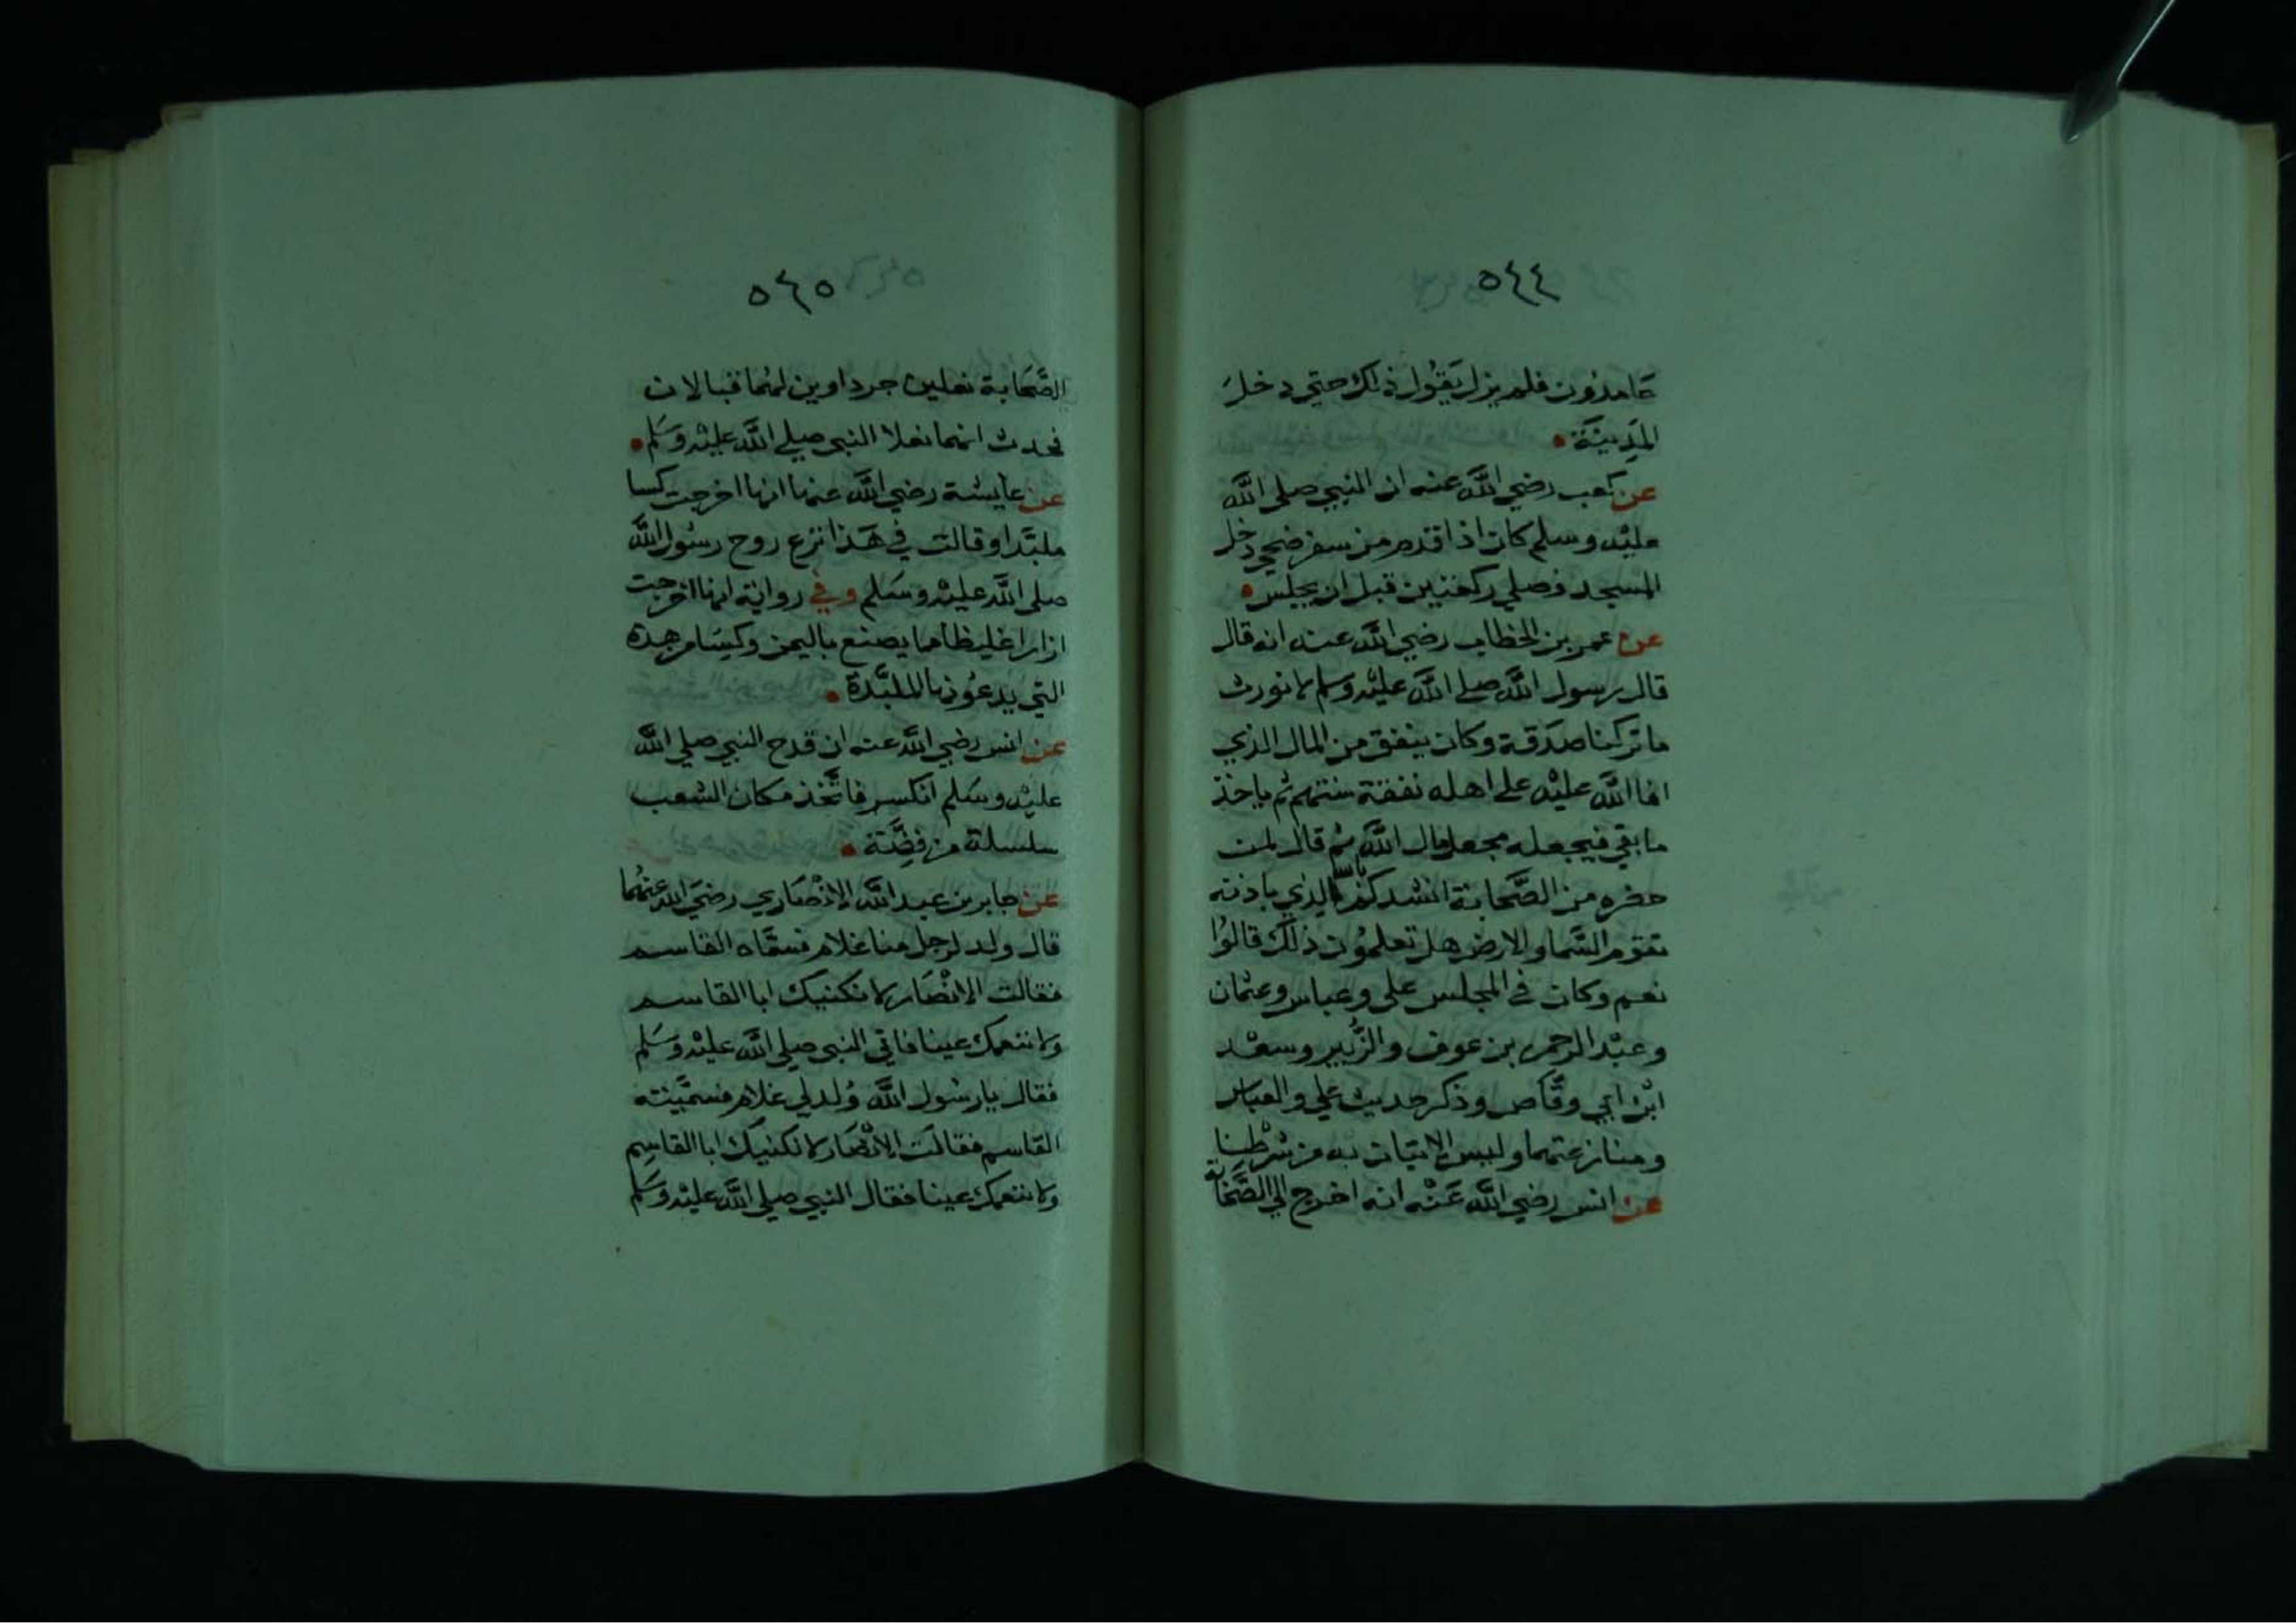 ٥٤٤
حامدون فلم يزل يقول ذلك حتي دخل
المدينة
عن كعب رضي الله عنه ان النبي صلى الله
عليه وسلم كان اذا قدم من سفر ضحي دخل
المسجد فصلي ركعتين قبل ان يجلس
عن عمر بن الخطاب رضي الله عنه انه قال
قال رسول الله صلى الله عليه وسلم لا نورث
ما تركنا صدقة وكان ينفق من المال الذي
افا الله عليه على اهله نفقة سنتهم ثم ياخذ
ما بقي فيجعله مجعل مال الله ثم قال لمن
حضره من الصحابة انشدكم بالله الذي باذنه
تقوم السما والارض هل تعلمون ذلك قالوا
نعم وكان في المجلس علي وعباس وعثمان
وعبد الرحمن بن عوف والزبير وسعد
ابن ابي وقاص وذكر حديث علي والعباس
ومنازعتهما وليس الاتيان به من شرطنا
عن انس رضي الله عنه انه اخرج الي الصحابة
٥٤٥
الصحابة نعلين جرداوين لهما قبالان
فحدث انهما نعلا النبي صلي الله عليه وسلم
عن عايشة رضي الله عنها انها اخرجت كسا
ملبدا وقالت في هذا نزع روح رسول الله
صلى الله عليه وسلم وفي رواية انها اخرجت
ازارا غليظا مما يصنع باليمن وكسا من هذه
التي يدعونها الملبدة
عن انس رضي الله عنه ان قدح النبي صلي الله
عليه وسلم انكسر فاتخذ مكان الشعب
سلسلة من فضة
عن جابر بن عبد الله الانصاري رضي الله عنهما
قال ولد لرجل منا غلام فسماه القاسم
فقالت الانصار لا نكنيك ابا القاسم
ولا ننعمك عينا فاتي النبي صلي الله عليه وسلم
فقال يا رسول الله ولد لي غلام فسميته
القاسم فقالت الانصار لا نكنيك ابا القاسم
ولا ننعمك عينا فقال النبي صلي الله عليه وسلم